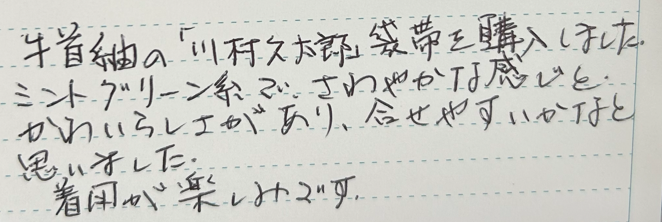 牛首紬の「川村久太郎」袋帯を購入しました.
ミントグリーン系で、さわやかな感じと.
かわいらしさがあり、合せやすいかなと
思いました.
着用が楽しみです.